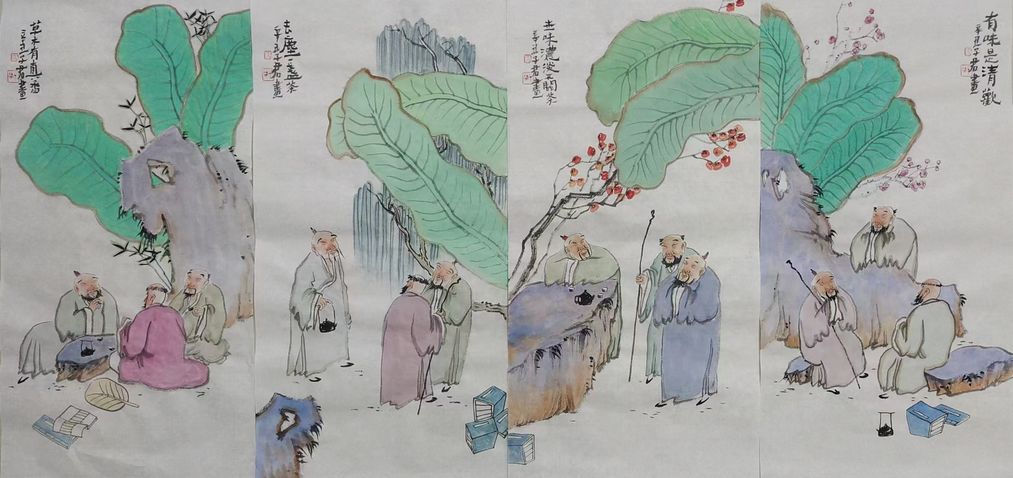 有味是清歡
辛丑子君畫
世味濃淡不關茶
辛丑子君畫
去塵盞茶
辛丑子君畫
草木有真香
辛丑子君畫